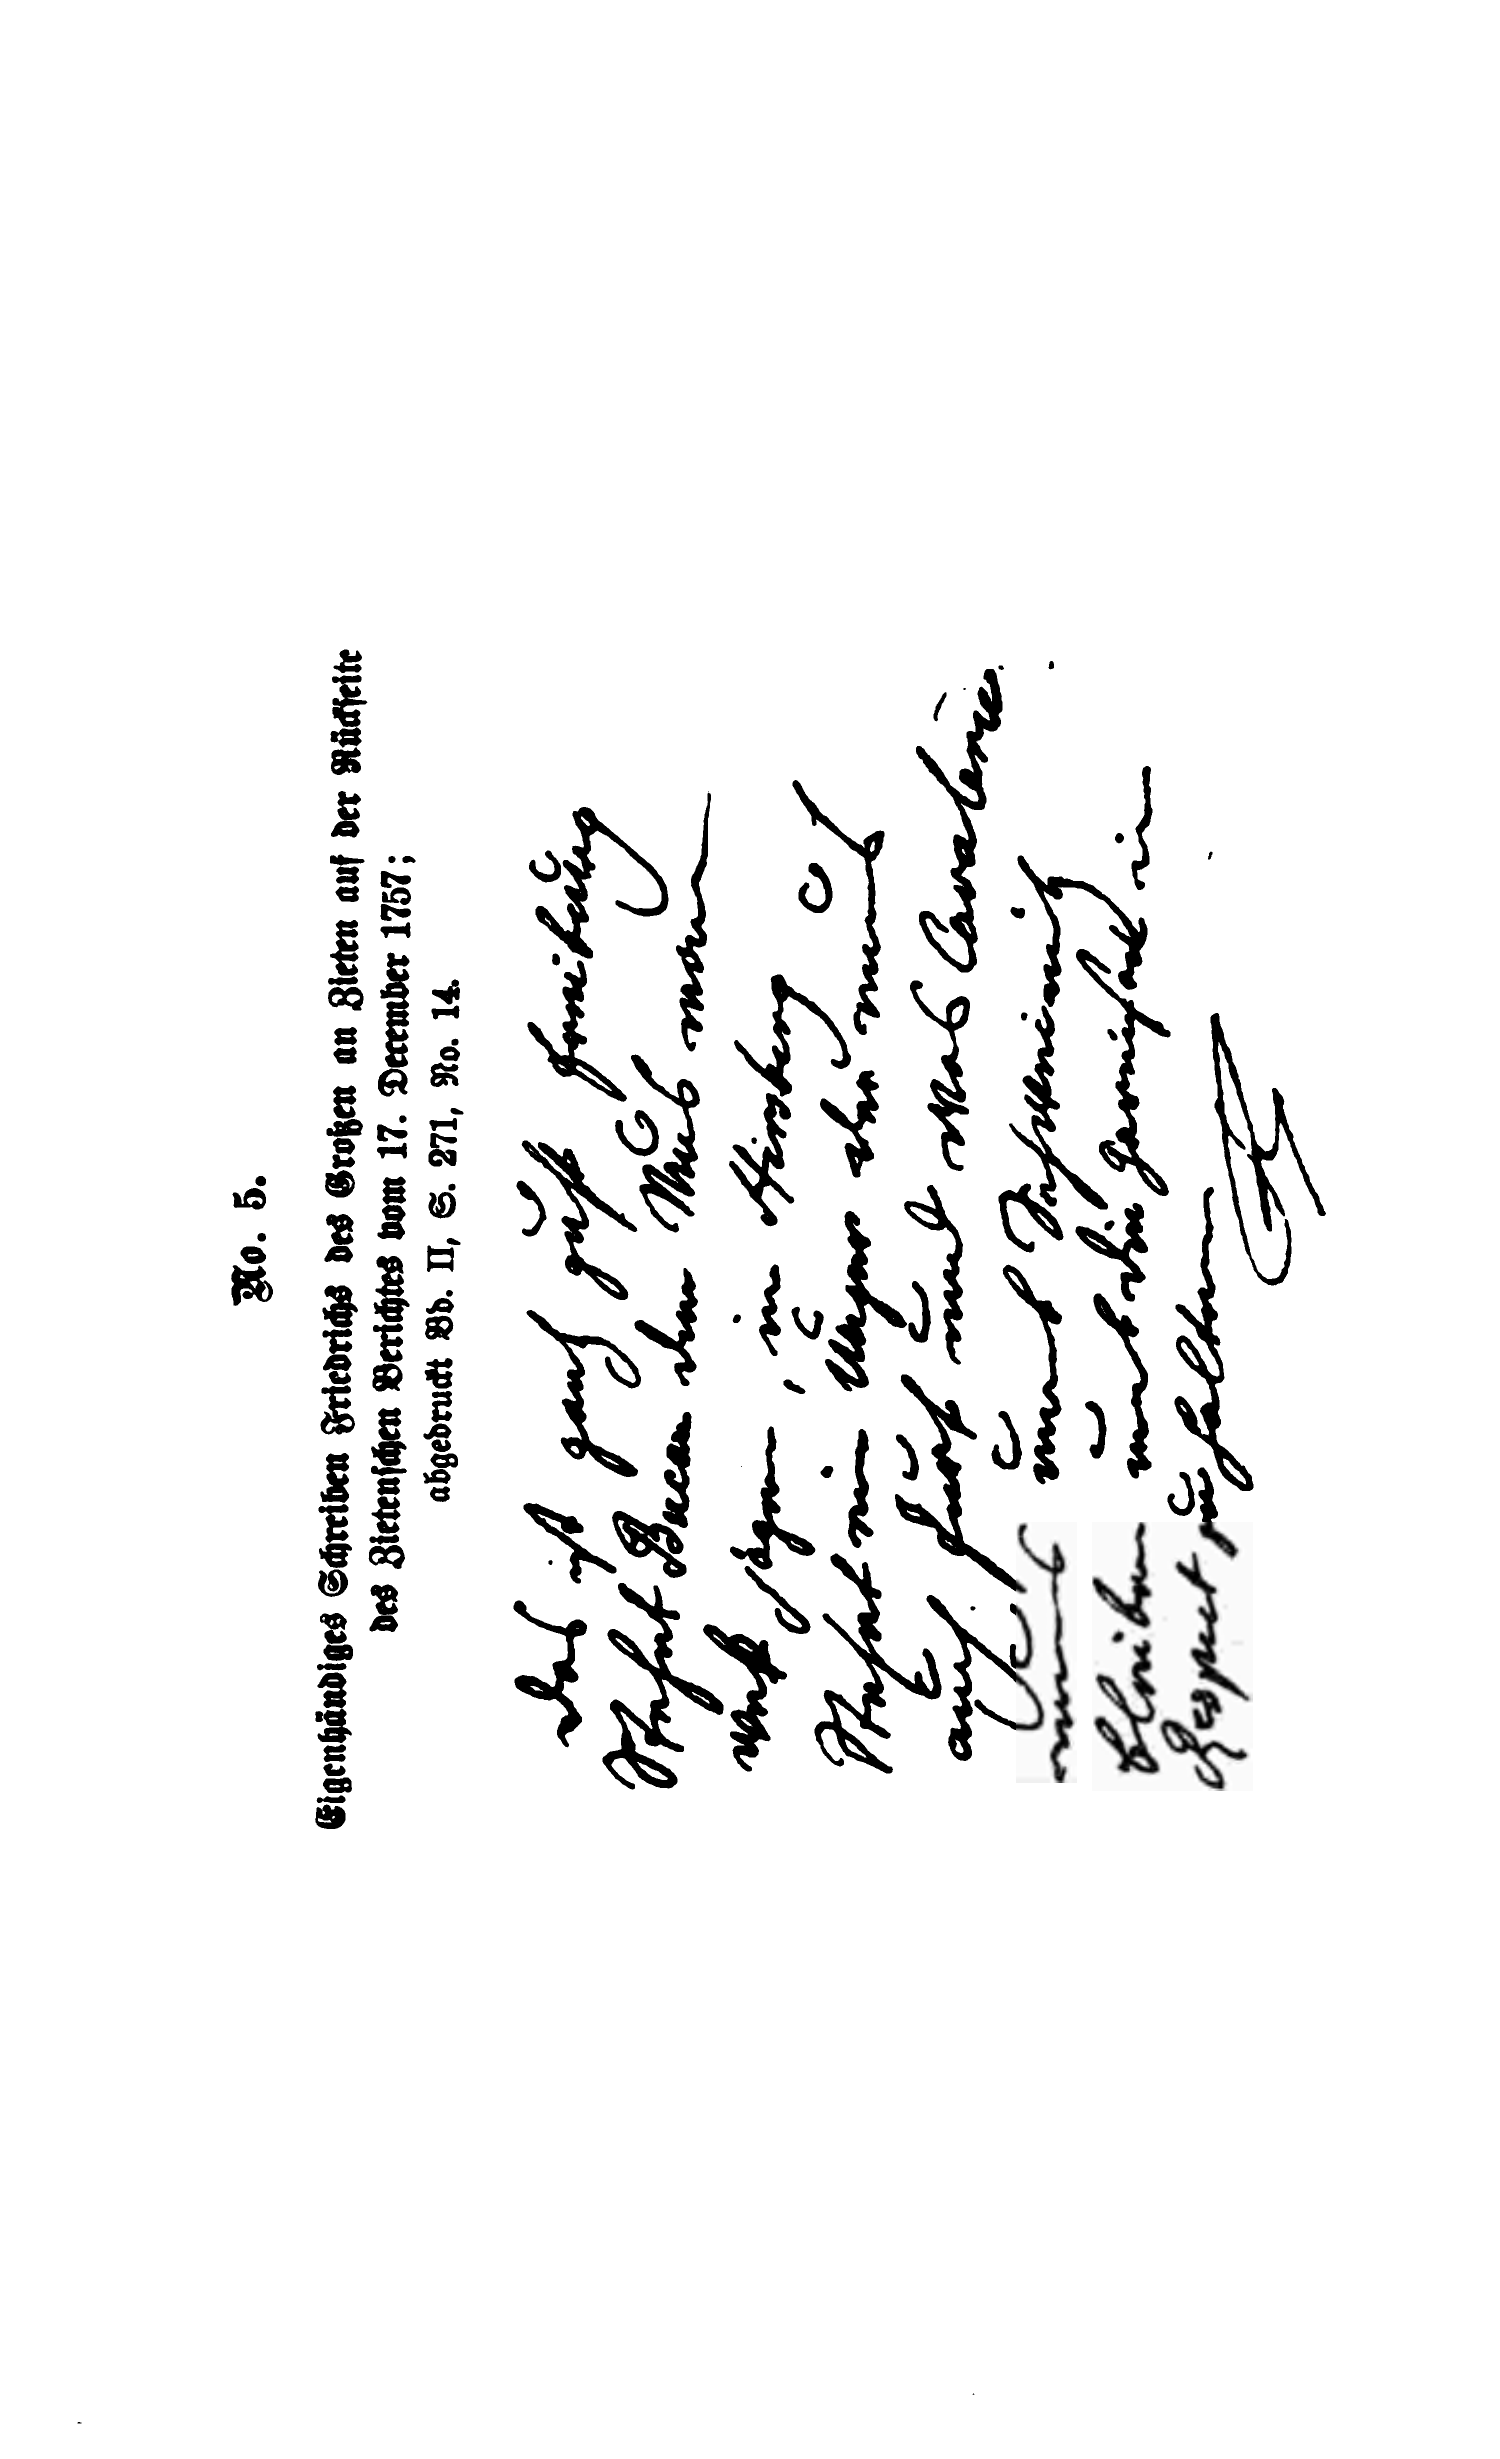 No. 5.
Eigenhändiges Schreiben Friedrichs des Großen an Zieten auf der Rückseite
des Zietenschen Berichtes vom 17. December 1757;
abgedruckt Bd. II, S. 271, No. 14.
das ist gantz guht freibürg
Stehet den Mus man
weg jagen, in Hirsberg
Stehet ein Unger den mus
auch und was Cavalerie
mus umb Schweinitz
bleiben umb die garnison in
Respect zu halten